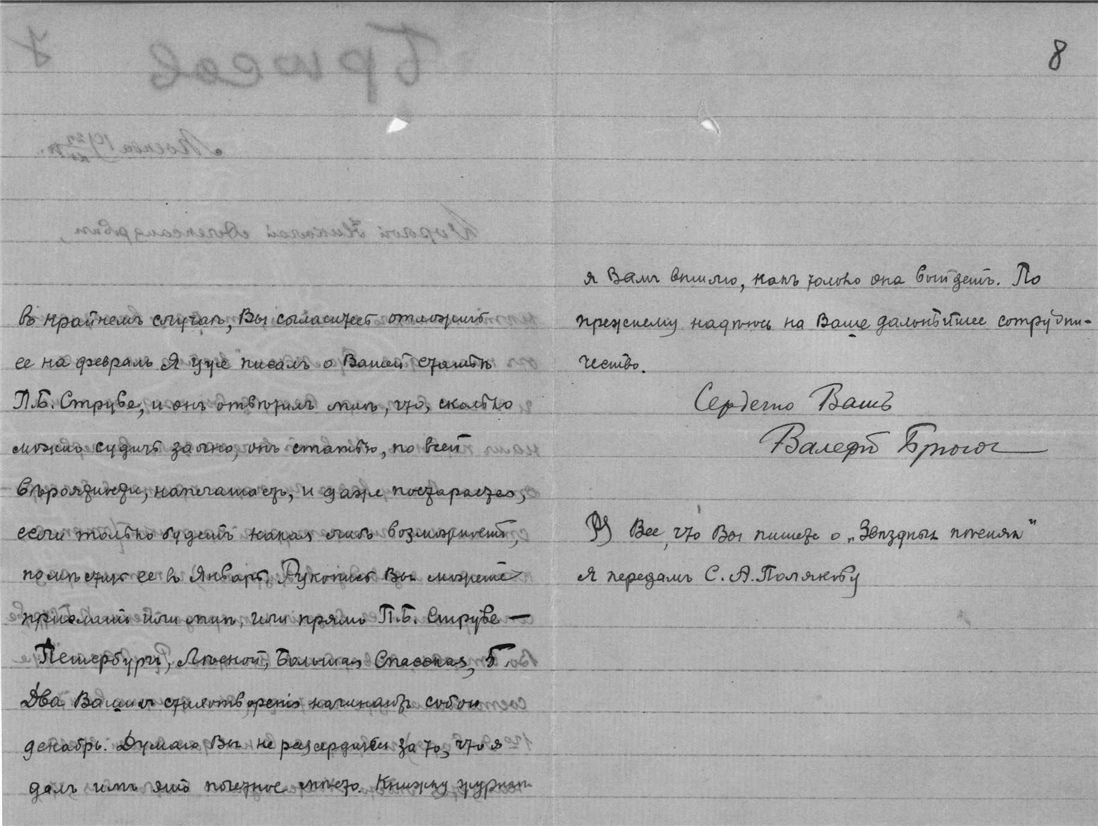 8
въ крайнемъ случаѣ, Вы согласитесь отложить
ее на февраль. Я уже писалъ о Вашей статьѣ
П.Б. Струве, и онъ отвѣтилъ мнѣ, что, сколько
можно судить заочно, онъ статью, по всей
вѣроятности, напечатаетъ, и даже постарается,
если только будетъ какая либо возможность,
помѣстить ее въ Январѣ. Рукопись Вы можете
прислать или мнѣ, или прямо П.Б. Струве —
Петербургъ, Лѣсной, Большая Спасская, 5.
Два Вашихъ стихотворенія начинаютъ собою
декабрь. Думаю Вы не разсердитесь за то, что я
далъ имъ это почетное мѣсто. Книжку журнала
я Вамъ вышлю, какъ только она выйдетъ. По
прежнему надѣюсь на Ваше дальнѣйшее сотрудни-
чество.
Сердечно Вашъ
Валерій Брюсовъ
PS Все, что Вы пишете о „Звѣздныхъ пѣсняхъ“
я передамъ С. А. Полякову